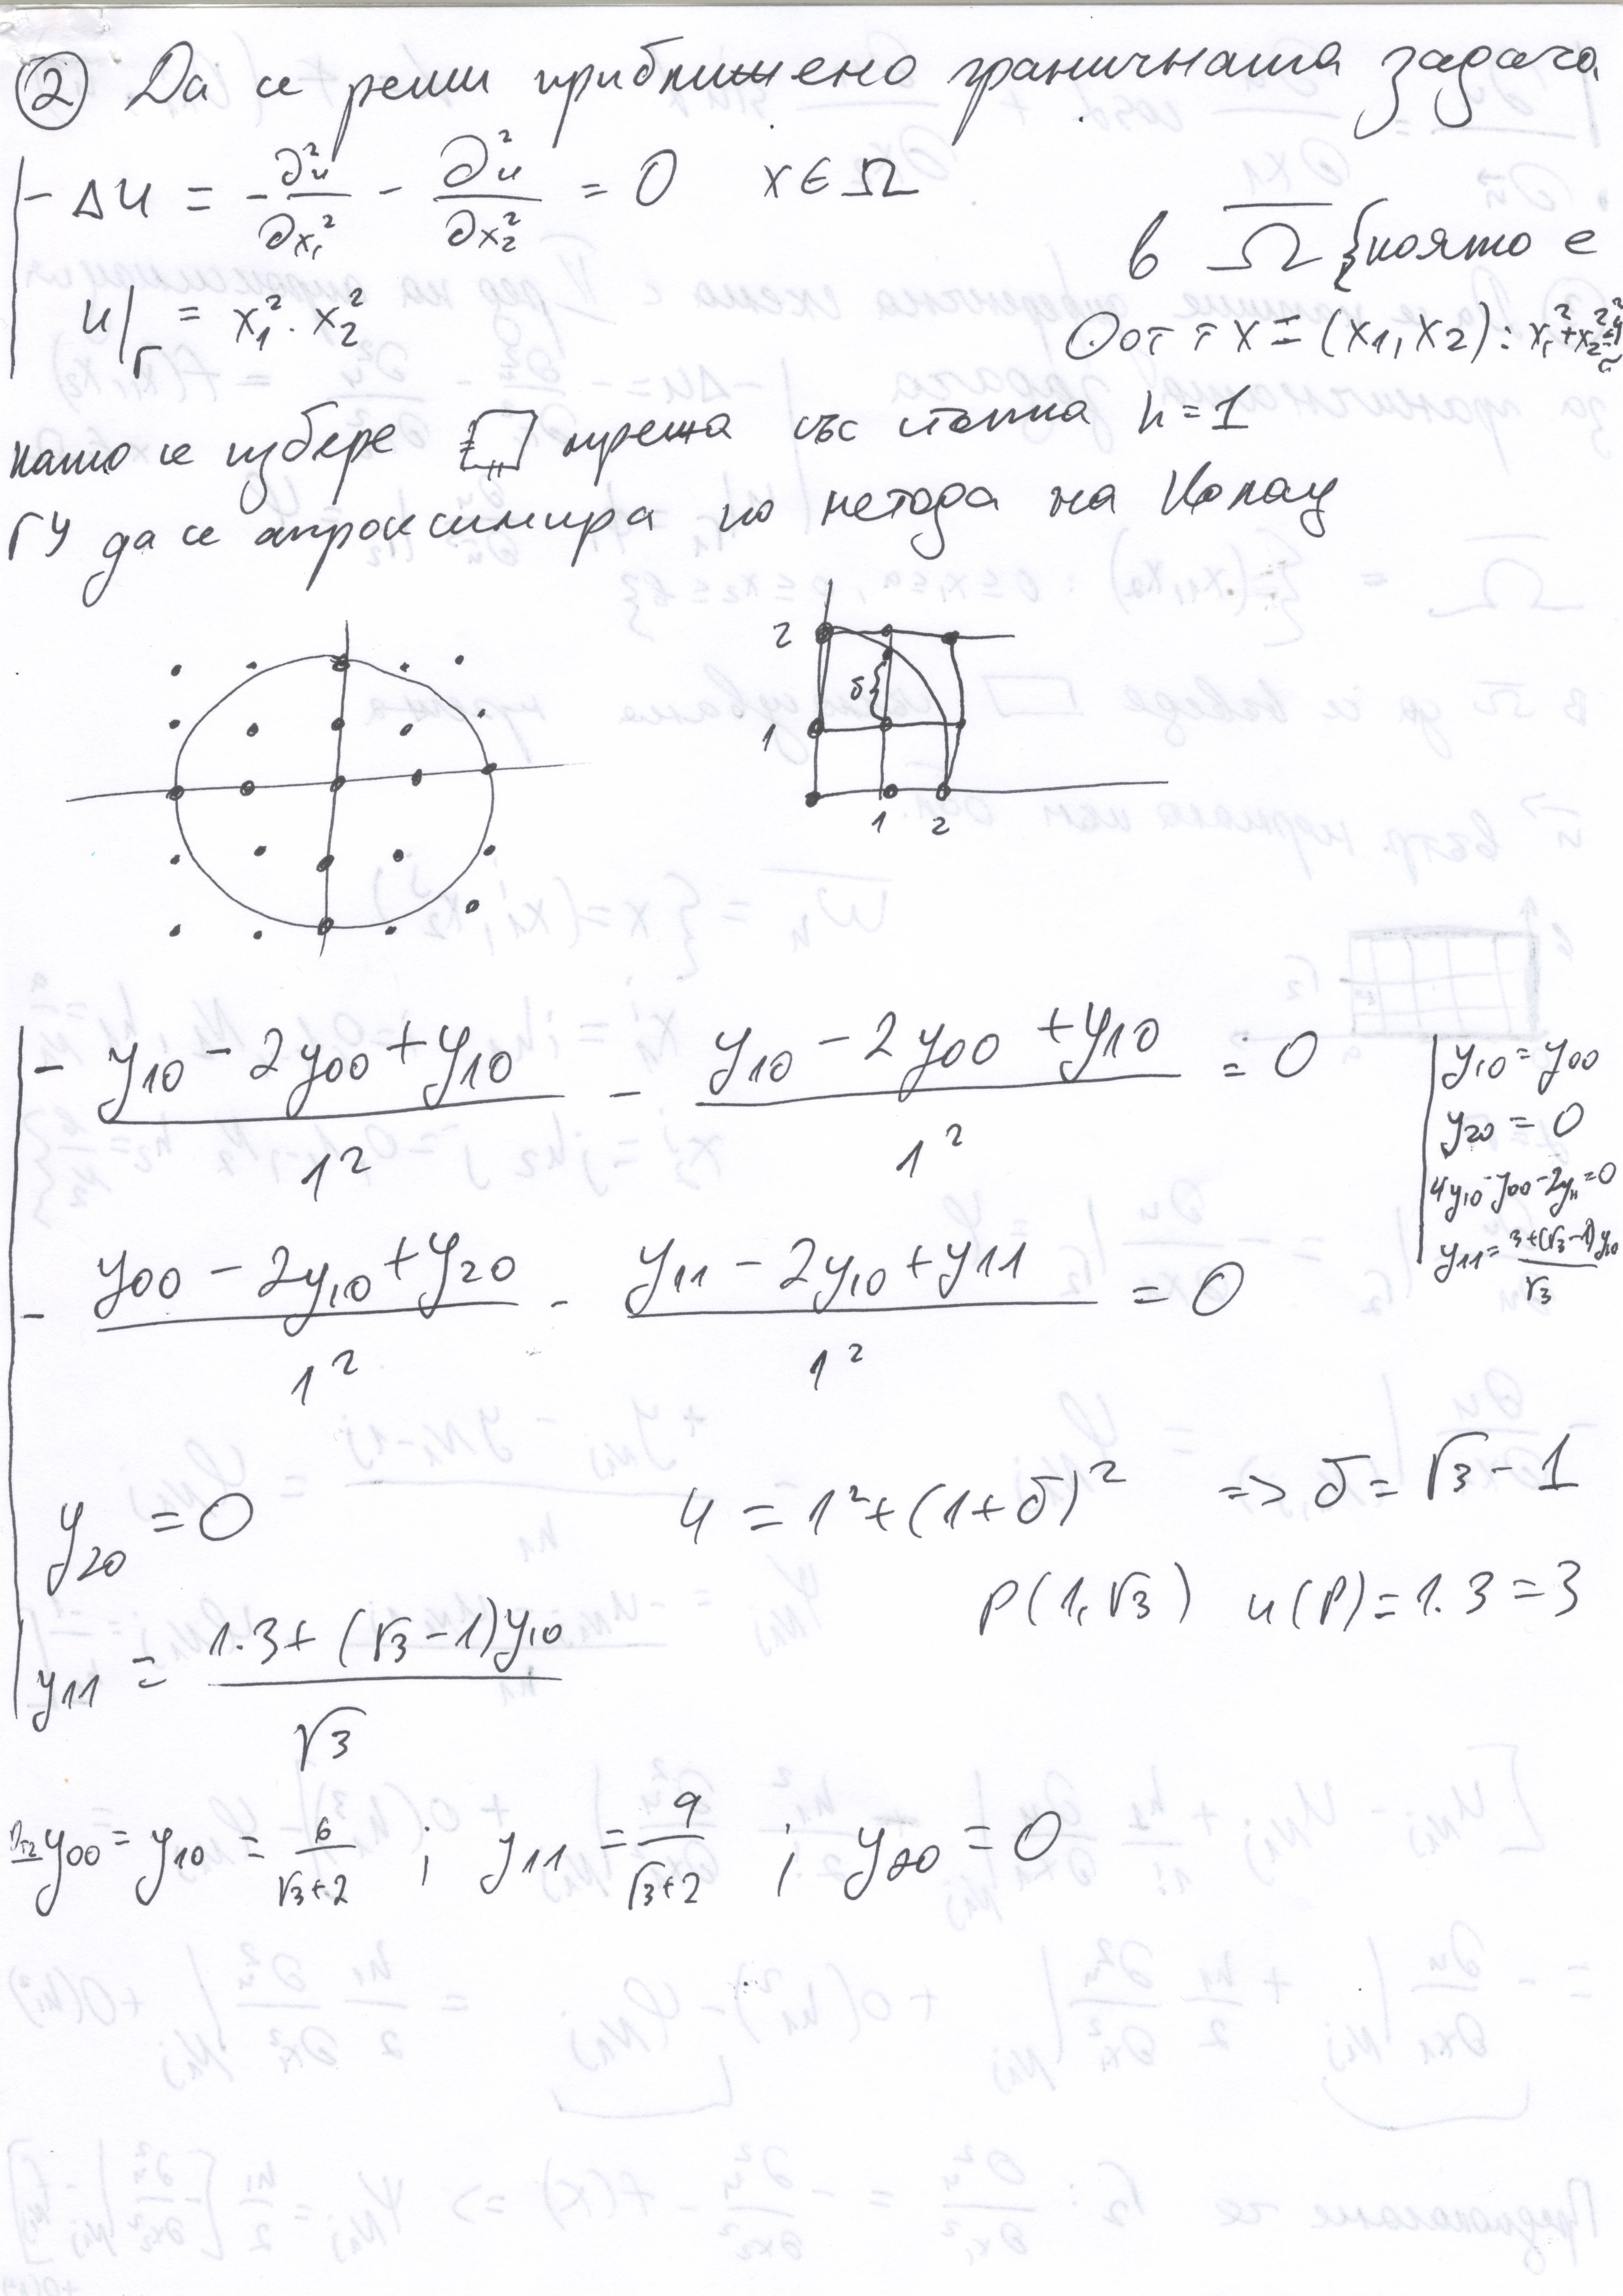 ② Да се реши приближено граничната задача
-Δu = -∂²u/∂x₁² - ∂²u/∂x₂² = 0 x ∈ Ω
u|Γ = x₁² . x₂²
в Ω̅ { която е
O от т x = (x₁, x₂) : x₁² + x₂²
като се избере □ мрежа със стъпка h = 1
ГУ да се апроксимира по метода на Колац
2
1
δ{
1 2
- (y10 - 2y00 + y10)/1² - (y10 - 2y00 + y10)/1² = 0
y10 = y00
y20 = 0
4y10 - y00 - 2y11 = 0
y11 = (3 + (√3 - 1)y10)/√3
- (y00 - 2y10 + y20)/1² - (y11 - 2y10 + y11)/1² = 0
y20 = 0
4 = 1² + (1 + δ)² => δ = √3 - 1
P(1, √3) u(P) = 1.3 = 3
y11 = (1.3 + (√3 - 1)y10)/√3
y00 = y10 = 6/(√3 + 2) ; y11 = 9/(√3 + 2) ; y20 = 0